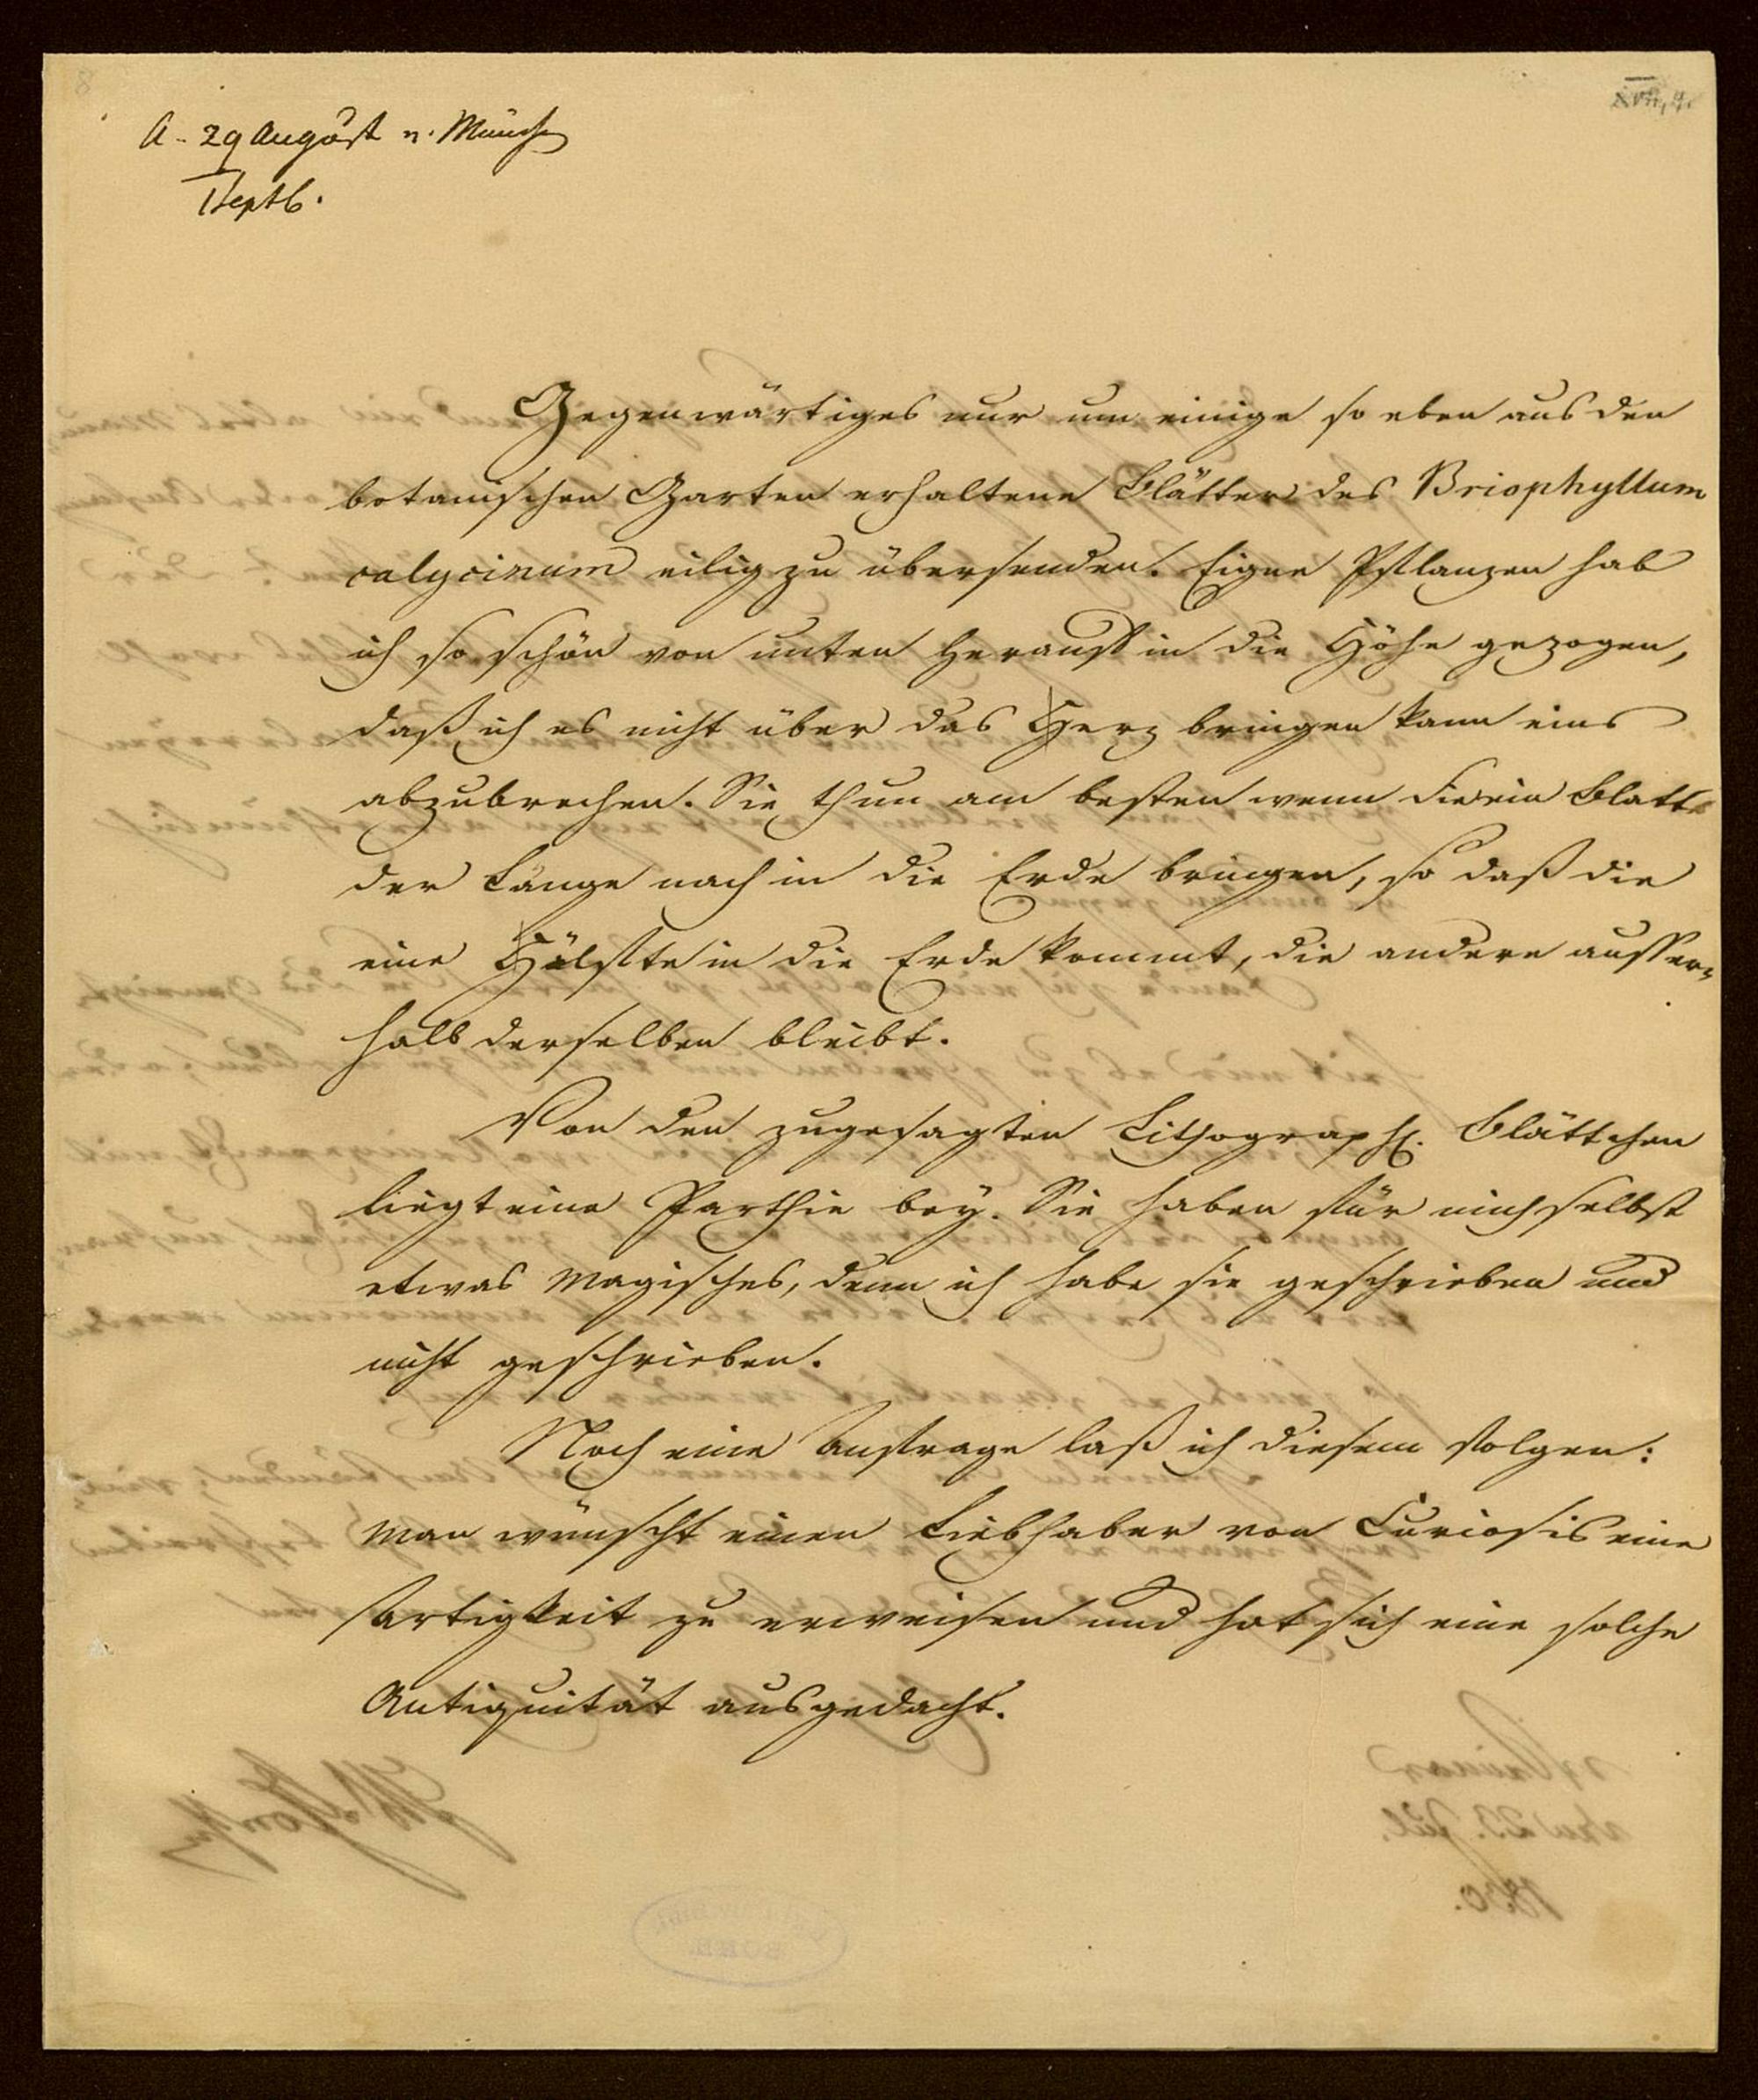 A. 29 August n. Münch
1 Septb.
Gegenwärtiges nur um einige so eben aus den
botanischen Garten erhaltene Blätter des Briophyllum
calycinum eilig zu übersenden. Eigne Pflanzen hab
ich so schön von unten herauf in die Höhe gezogen,
daß ich es nicht über das Herz bringen kann eins
abzubrechen. Sie thun am besten wenn Sie ein Blatt
der Länge nach in die Erde bringen, so daß die
eine Hälfte in die Erde kommt, die andere ausser-
halb derselben bleibt.
Von den zugesagten Lithograph. Blättchen
liegt eine Parthie bey. Sie haben für mich selbst
etwas Magisches, denn ich habe sie geschrieben und
nicht geschrieben.
Noch eine Anfrage laß ich diesem folgen:
Man wünscht einen Liebhaber von Curiosis eine
Artigkeit zu erweisen und hat sich eine solche
Antiquität ausgedacht.